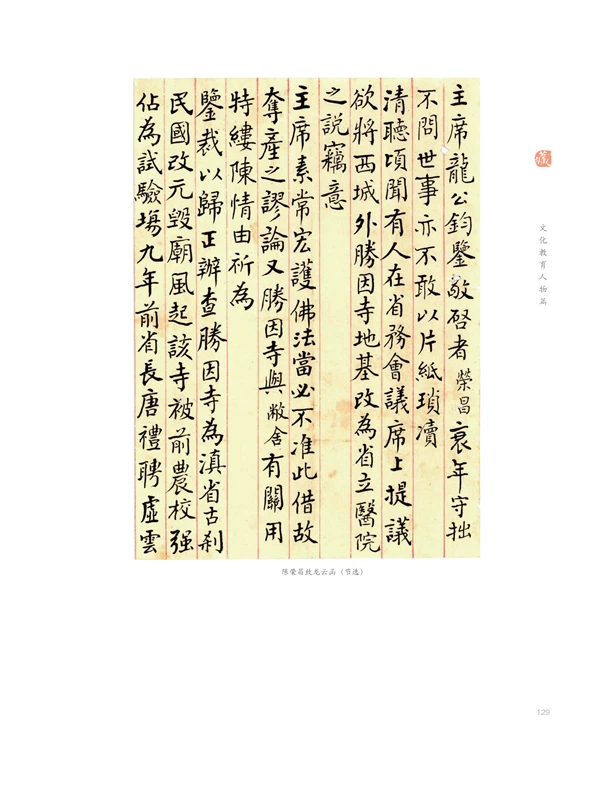 主席龍公鈞鑒敬啓者榮昌衰年守拙
不問世事亦不敢以片紙瑣瀆
清聽頃聞有人在省務會議席上提議
欲將西城外勝因寺地基改為省立醫院
之説竊意
主席素常宏護佛法當必不准此借故
奪產之謬論又勝因寺與敝舍有關用
特縷陳情由祈為
鑒裁以歸正辦查勝因寺為滇省古刹
民國改元毀廟風起該寺被前農校强
佔為試驗場九年前省長唐禮聘虛雲
陈荣昌致龙云函（节选）
文化教育人物篇
129